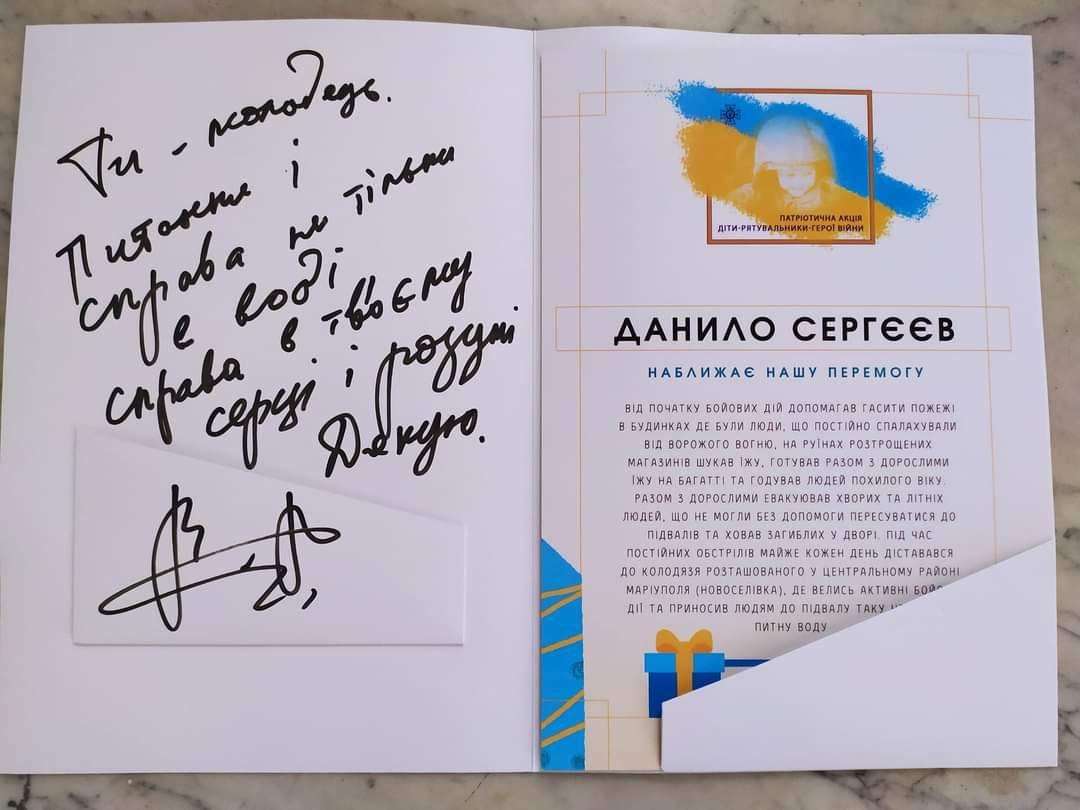 Ти - молодець.
Питання і
справа не тільки
в воді
справа в твоєму
серці і розумі
Дякую.
ПАТРІОТИЧНА АКЦІЯ
ДІТИ-РЯТУВАЛЬНИКИ-ГЕРОЇ ВІЙНИ
ДАНИЛО СЕРГЄЄВ
НАБЛИЖАЄ НАШУ ПЕРЕМОГУ
ВІД ПОЧАТКУ БОЙОВИХ ДІЙ ДОПОМАГАВ ГАСИТИ ПОЖЕЖІ
В БУДИНКАХ ДЕ БУЛИ ЛЮДИ, ЩО ПОСТІЙНО СПАЛАХУВАЛИ
ВІД ВОРОЖОГО ВОГНЮ, НА РУЇНАХ РОЗТРОЩЕНИХ
МАГАЗИНІВ ШУКАВ ЇЖУ, ГОТУВАВ РАЗОМ З ДОРОСЛИМИ
ЇЖУ НА БАГАТТІ ТА ГОДУВАВ ЛЮДЕЙ ПОХИЛОГО ВІКУ.
РАЗОМ З ДОРОСЛИМИ ЕВАКУЮВАВ ХВОРИХ ТА ЛІТНІХ
ЛЮДЕЙ, ЩО НЕ МОГЛИ БЕЗ ДОПОМОГИ ПЕРЕСУВАТИСЯ ДО
ПІДВАЛІВ ТА ХОВАВ ЗАГИБЛИХ У ДВОРІ. ПІД ЧАС
ПОСТІЙНИХ ОБСТРІЛІВ МАЙЖЕ КОЖЕН ДЕНЬ ДІСТАВАВСЯ
ДО КОЛОДЯЗЯ РОЗТАШОВАНОГО У ЦЕНТРАЛЬНОМУ РАЙОНІ
МАРІУПОЛЯ (НОВОСЕЛІВКА), ДЕ ВЕЛИСЬ АКТИВНІ
ДІЇ ТА ПРИНОСИВ ЛЮДЯМ ДО ПІДВАЛУ ТАКУ
ПИТНУ ВОДУ